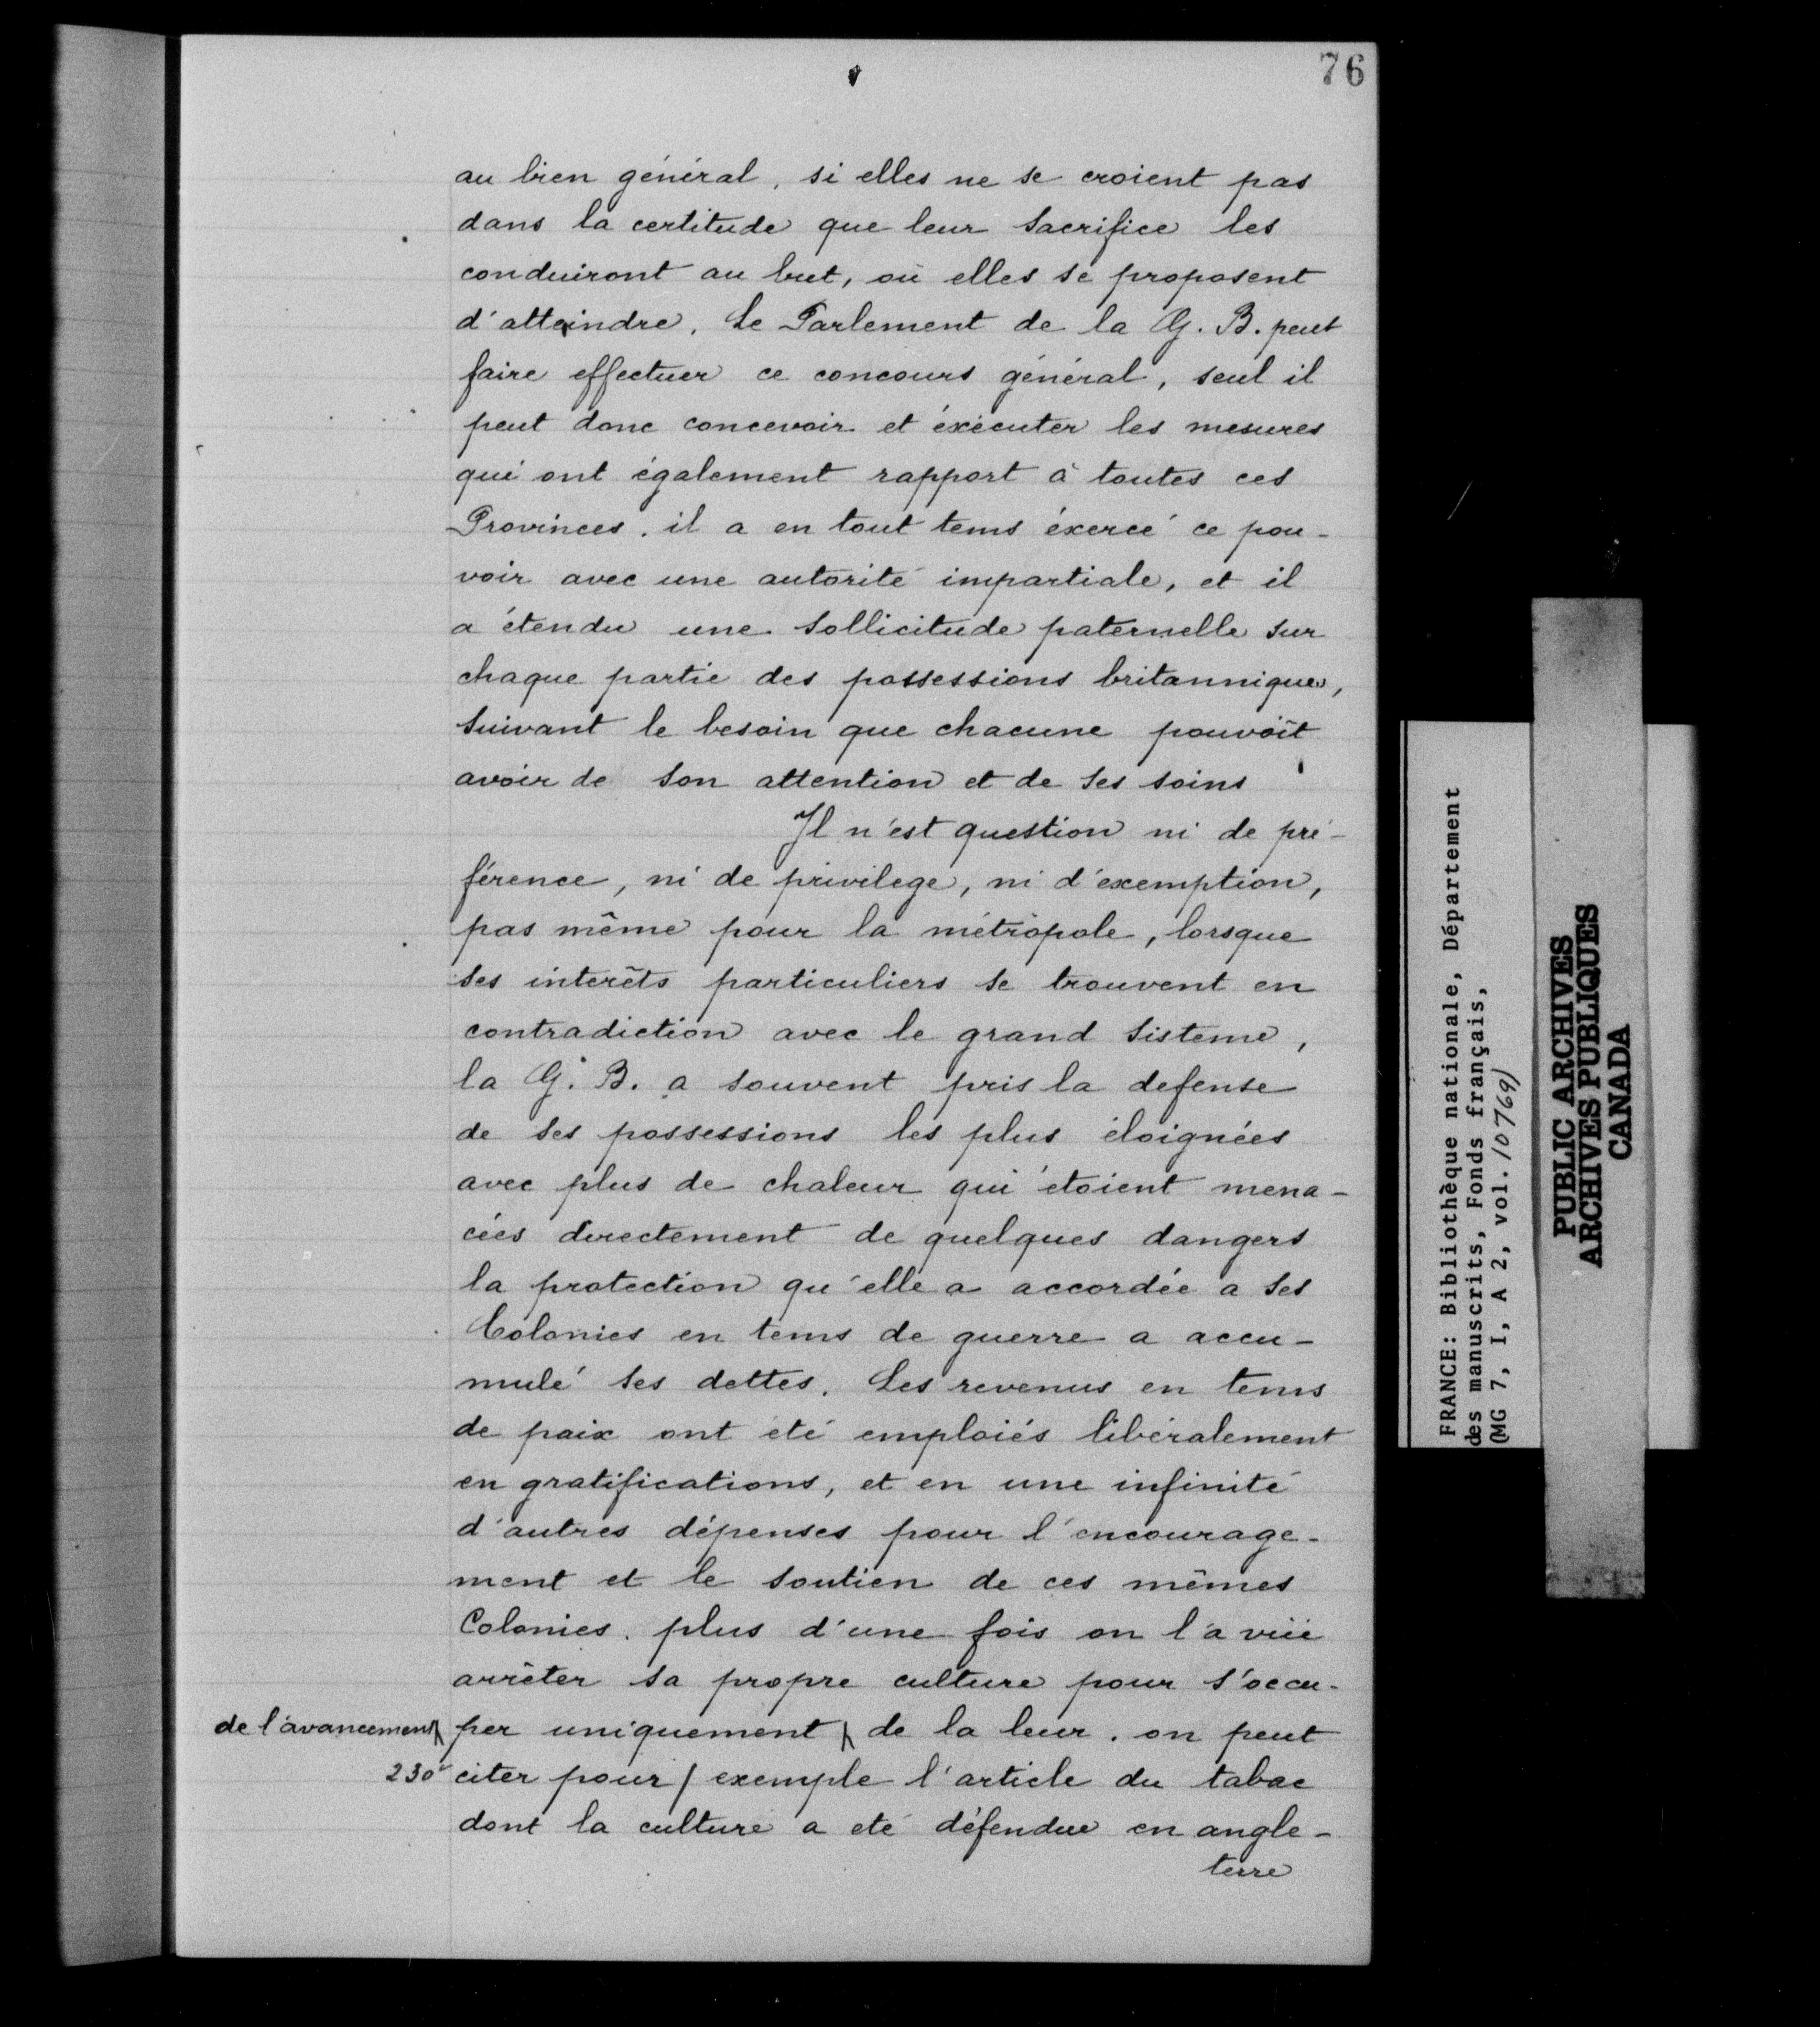 76
au bien général, si elles ne se croient pas
dans la certitude que leur sacrifice les
conduiront au but, où elles se proposent
d'atteindre. Le Parlement de la G. B. peut
faire effectuer ce concours général, seul il
peut donc concevoir et éxécuter les mesures
qui ont également rapport à toutes ces
Provinces. il a en tout tems éxercé ce pou-
voir avec une autorité impartiale, et il
a étendu une sollicitude paternelle sur
chaque partie des possessions britanniques,
suivant le besoin que chacune pouvoit
avoir de son attention et de ses soins
Il n'est question ni de pré-
férence, ni de privilege, ni d'exemption,
pas même pour la métropole, lorsque
ses interêts particuliers se trouvent en
contradiction avec le grand sisteme,
la G. B. a souvent pris la defense
de ses possessions les plus éloignées
avec plus de chaleur qui étoient mena-
cées directement de quelques dangers
la protection qu'elle a accordée a ses
Colonies en tems de guerre a accu-
mulé ses dettes. Les revenus en tems
de paix ont été emploiés libéralement
en gratifications, et en une infinité
d'autres dépenses pour l'encourage-
ment et le soutien de ces mêmes
Colonies. plus d'une fois on l'a vüe
arrêter sa propre culture pour s'occu-
de l'avancement per uniquement de la leur. on peut
230v citer pour / exemple l'article du tabac
dont la culture a eté défendue en angle-
terre
FRANCE: Bibliothèque nationale, Département
des manuscrits, Fonds français,
(MG 7, I, A 2, vol. 10769)
PUBLIC ARCHIVES
ARCHIVES PUBLIQUES
CANADA